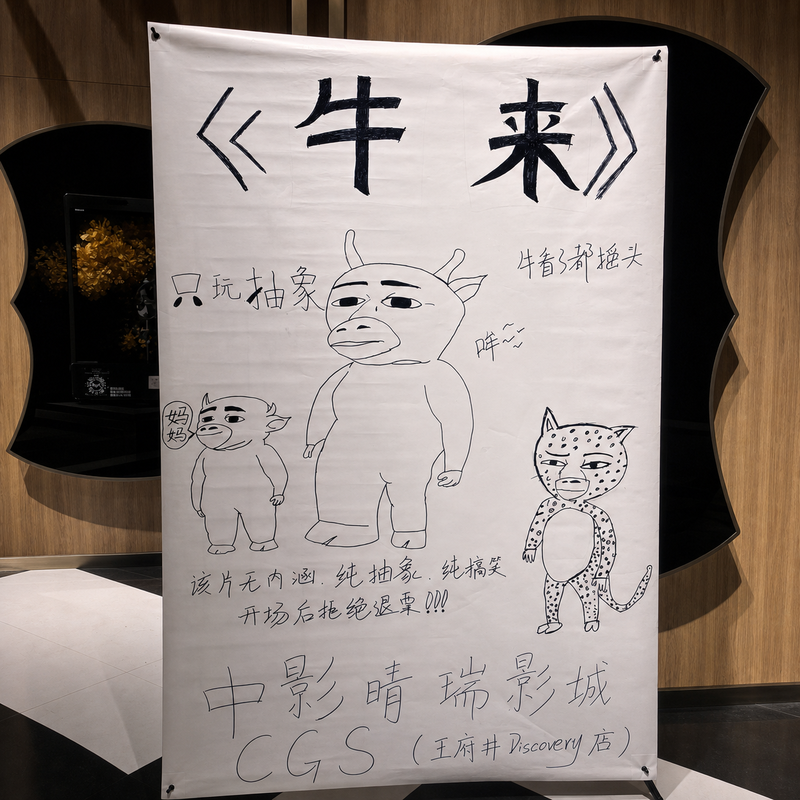 《牛来》
牛看了都摇头
只玩抽象
哞~~~
妈妈
该片无内涵.纯抽象.纯搞笑
开场后拒绝退票!!!
中影晴瑞影城
CGS(王府井Discovery店)